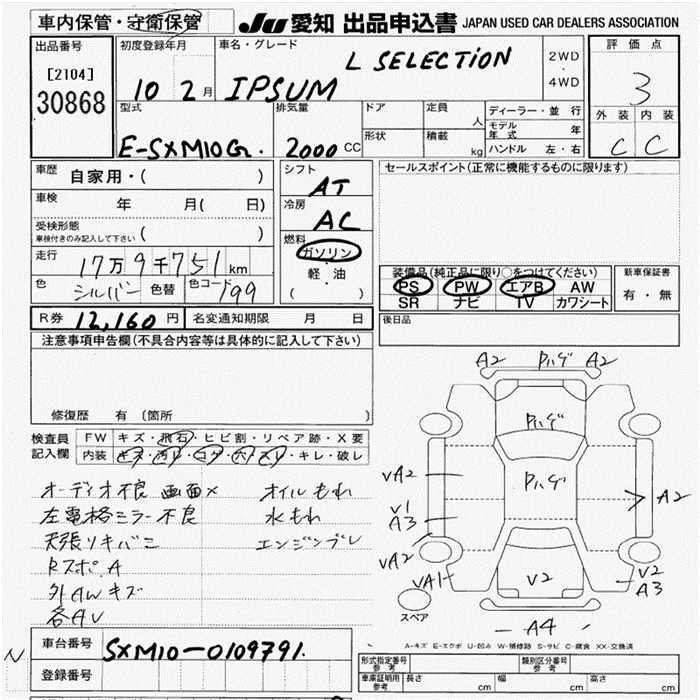 車内保管・守衛保管
JU 愛知 出品申込書 JAPAN USED CAR DEALERS ASSOCIATION
出品番号 初度登録年月 車名・グレード 評価点
[2104] L SELECTiON 2WD・4WD 3
30868 10 2月 IPSUM 外装 内装
型式 排気量 ドア 定員 人 ディーラー・並行 C C
モデル年式 年
E-SXM10G. 2000 CC 形状 積載 kg ハンドル 左・右
車歴 自家用・( ) シフト AT セールスポイント(正常に機能するものに限ります)
車検 年 月( 日) 冷房 AC
受検形態 車検付きのみ記入して下さい ( )
燃料 ガソリン・軽油 ( )
走行 17万9千751km
装備品(純正品に限り○をつけてください) 新車保証書
色 シルバー 色替 色コード 199 PS PW エアB AW 有・無
SR ナビ TV カワシート
R券 12,160円 名変通知期限 月 日 後日品
注意事項申告欄(不具合内容等は具体的に記入して下さい)
A2 Pハゲ A2
修復歴 有 (箇所 )
Pハゲ
検査員記入欄 FW キズ・飛石・ヒビ割・リペア跡・X要
内装 キズ・汚れ・コゲ・穴・スレ・キレ・破レ
VA2 Pハゲ A2
オーディオ不良 画面× オイルもれ
V1 A3
左電格ミラー不良 水もれ
VA2
天張リキバミ エンジンブレ
RスポA VA1 V2 V2 A3
外AWキズ
各AV スペア A4
A-キズ E-エクボ U-凹み W-補修跡 S-サビ C-腐食 XX-交換済
N 車台番号 SXM10-0109791.
登録番号 形式指定番号 参考 類別区分番号 参考
車庫証明用 参考 長さ cm 幅 cm 高さ cm